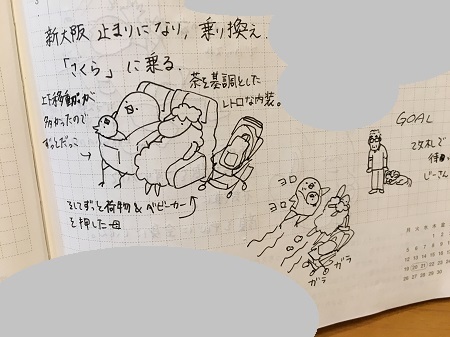 新大阪 止まりになり、乗り換え.
「さくら」に乗る.
茶を基調とした
レトロな内装。
上下移動が
多かったので
ずっとだっこ
そしてずっと荷物&ベビーカー
を押した母
GOAL
改札で
待つ
じーさん
ヨロ
ヨロ
ガラ
ガラ